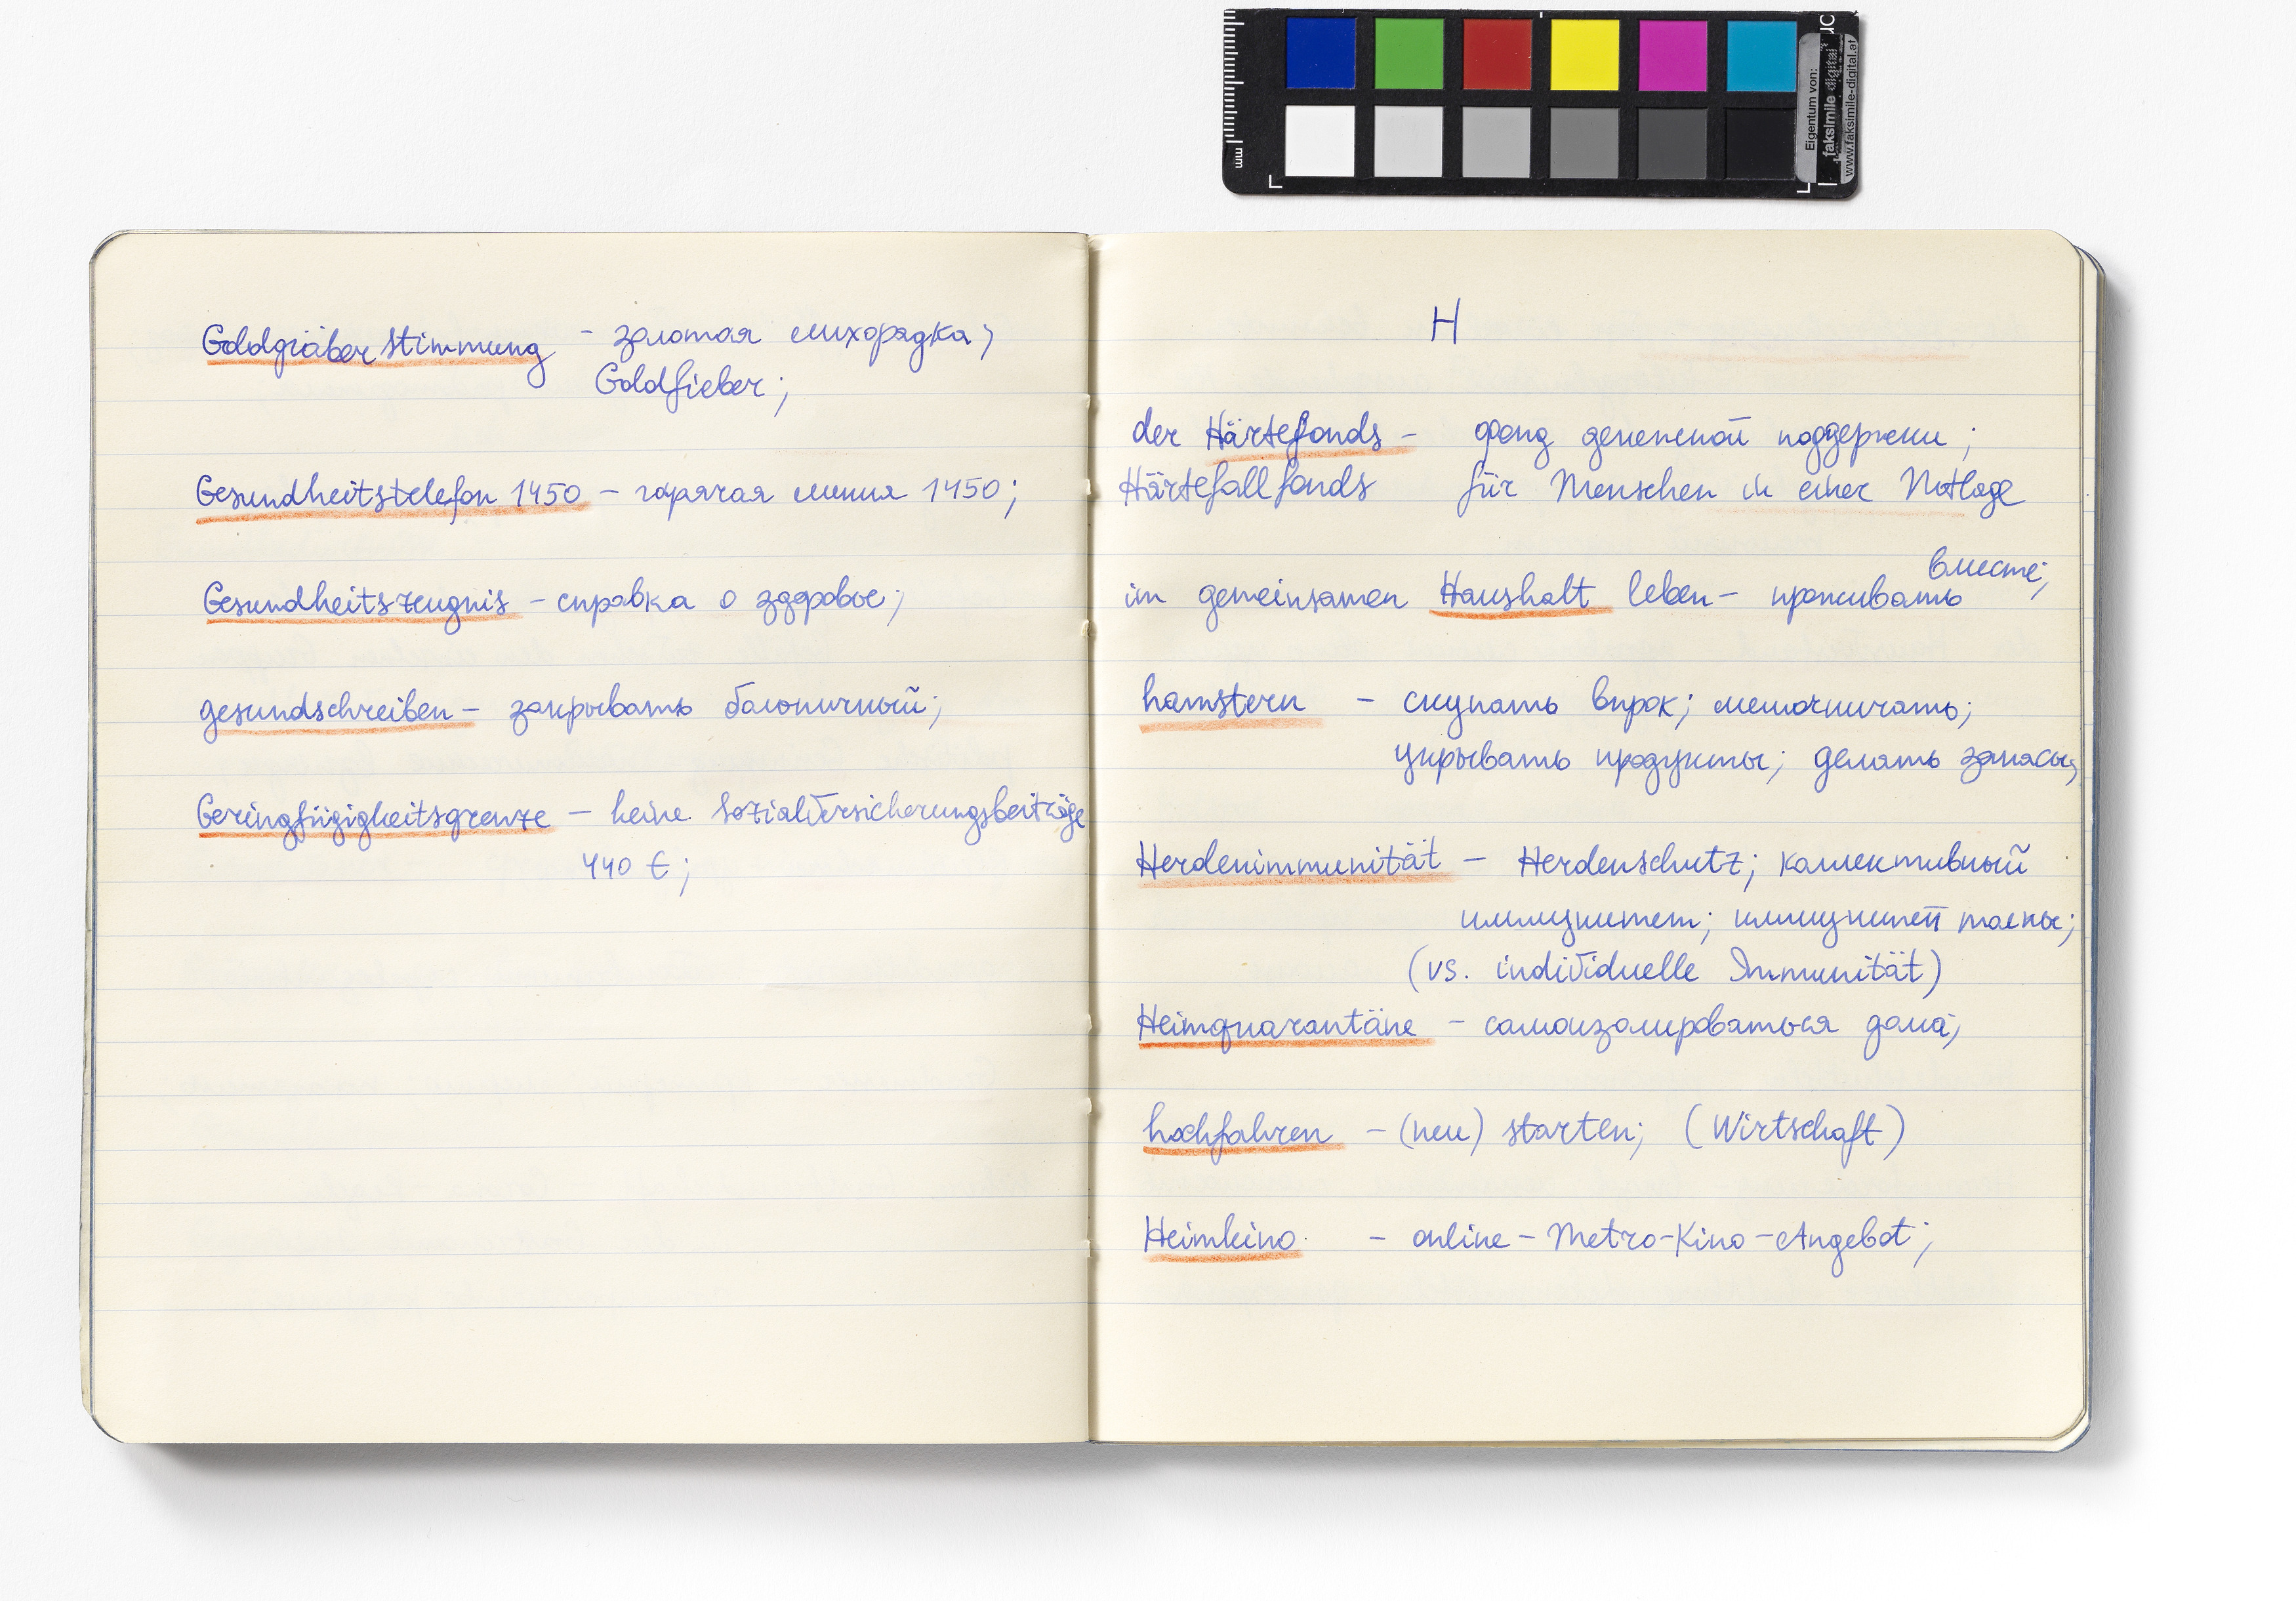 Goldgräberstimmung - золотая лихорадка;
Goldfieber;
Gesundheitstelefon 1450 - горячая линия 1450;
Gesundheitszeugnis - справка о здоровье;
gesundschreiben - закрывать больничный;
Geringfügigkeitsgrenze - keine Sozialversicherungsbeiträge
440 €;
H
der Härtefonds - фонд денежной поддержки;
Härtefallfonds für Menschen in einer Notlage
вместе;
im gemeinsamen Haushalt leben - проживать
hamstern - скупать впрок; мешочничать;
укрывать продукты; делать запасы;
Herdenimmunität - Herdenschutz; коллективный
иммунитет; иммунитет толпы;
(vs. individuelle Immunität)
Heimquarantäne - самоизолироваться дома;
hochfahren - (neu) starten; (Wirtschaft)
Heimkino - online-Metro-Kino-Angebot;
mm
Eigentum von:
faksimile digital
www.faksimile-digital.at